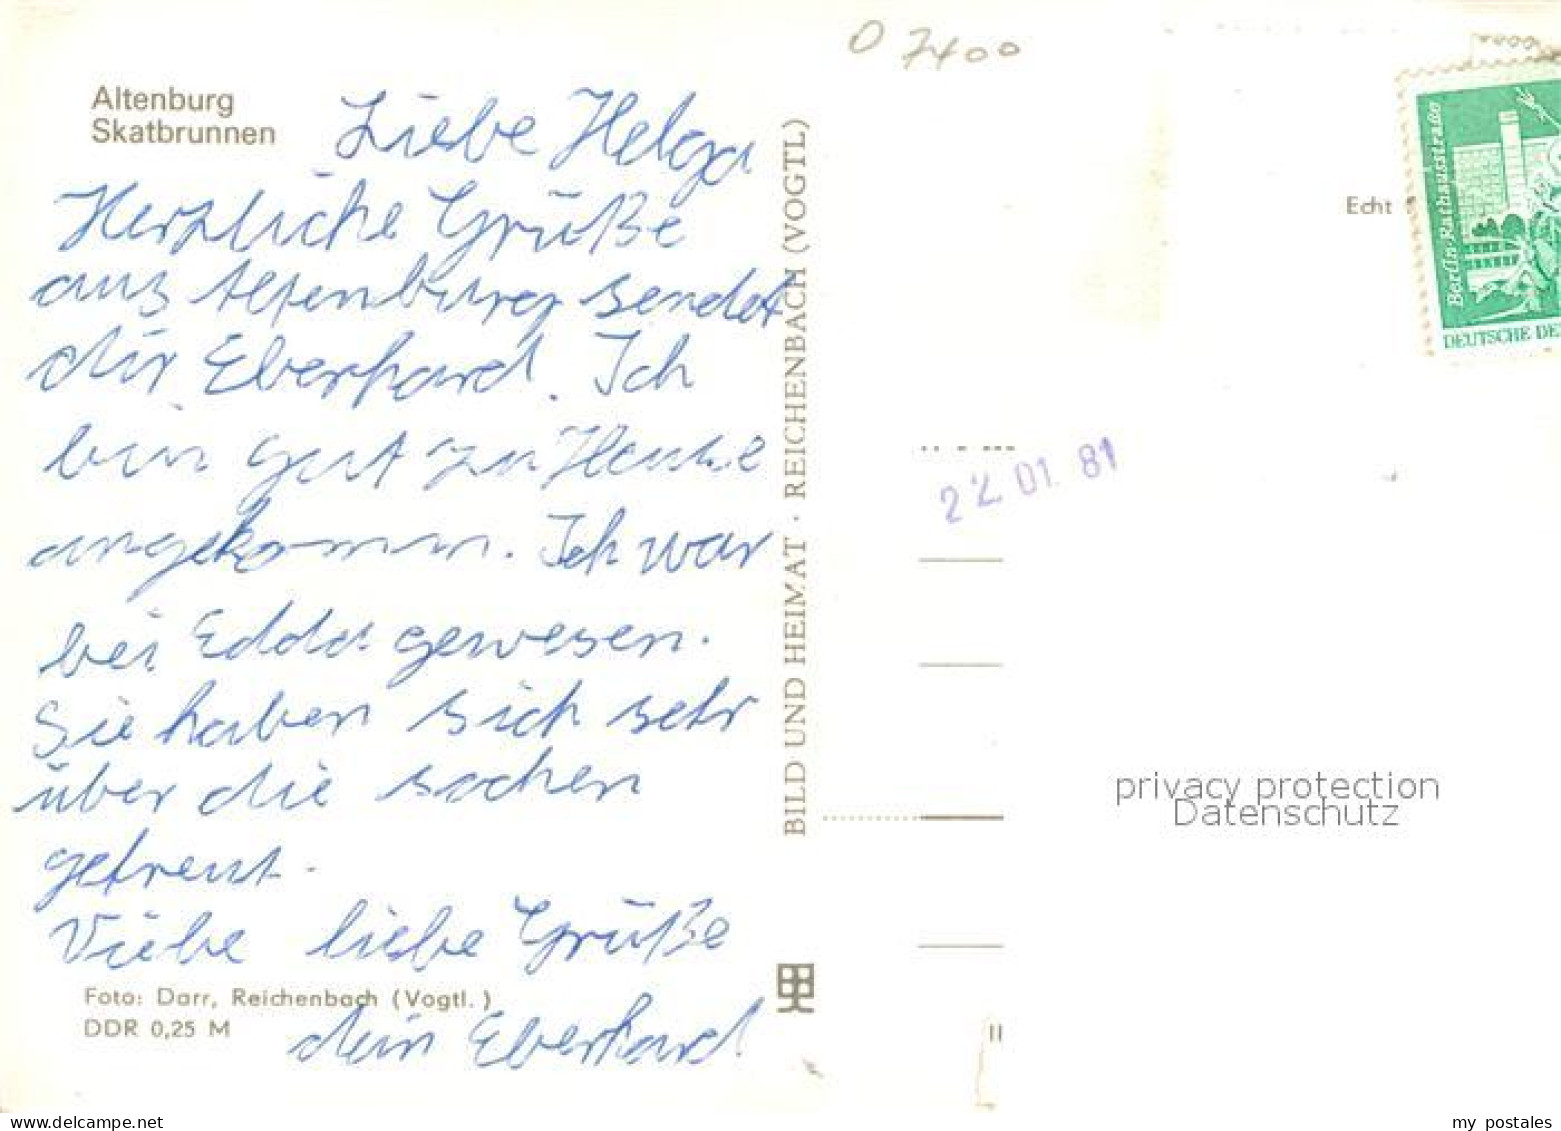 O 7400
Altenburg
Skatbrunnen
Liebe Helga
Herzliche Grüße
aus Altenburg sendet
dir Eberhard. Ich
bin gut zu Hause
angekommn. Ich war
bei Edda gewesen.
Sie haben sich sehr
über die sachen
gefreut.
Viebe liebe Grüße
dein Eberhard
Foto: Darr, Reichenbach (Vogtl.)
DDR 0,25 M
BILD UND HEIMAT · REICHENBACH (VOGTL)
Echt
Berlin-Rathausstraße
DEUTSCHE DE
22.01.81
privacy protection
Datenschutz
II
delcampe.net
my_postales